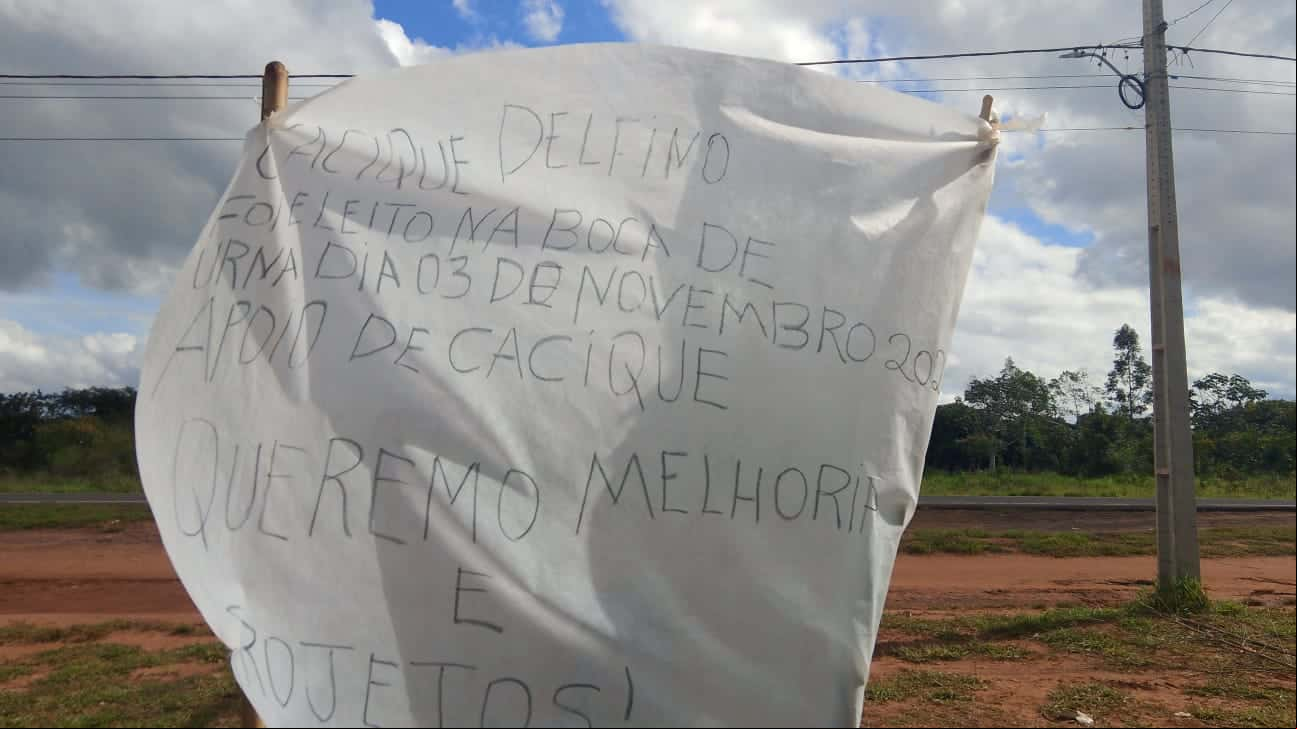 CACIQUE DELFINO
FOI ELEITO NA BOCA DE
URNA DIA 03 DE NOVEMBRO 202
APOIO DE CACIQUE
QUEREMO MELHORIA
E
PROJETOS!